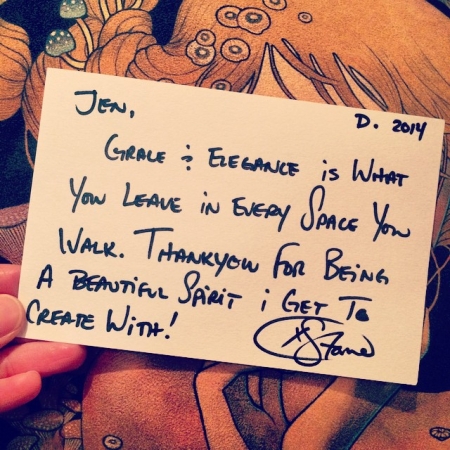 Jen,
D. 2014
Grace & Elegance is What
You Leave in Every Space You
Walk. Thankyou For Being
A Beautiful Spirit i Get To
Create With!